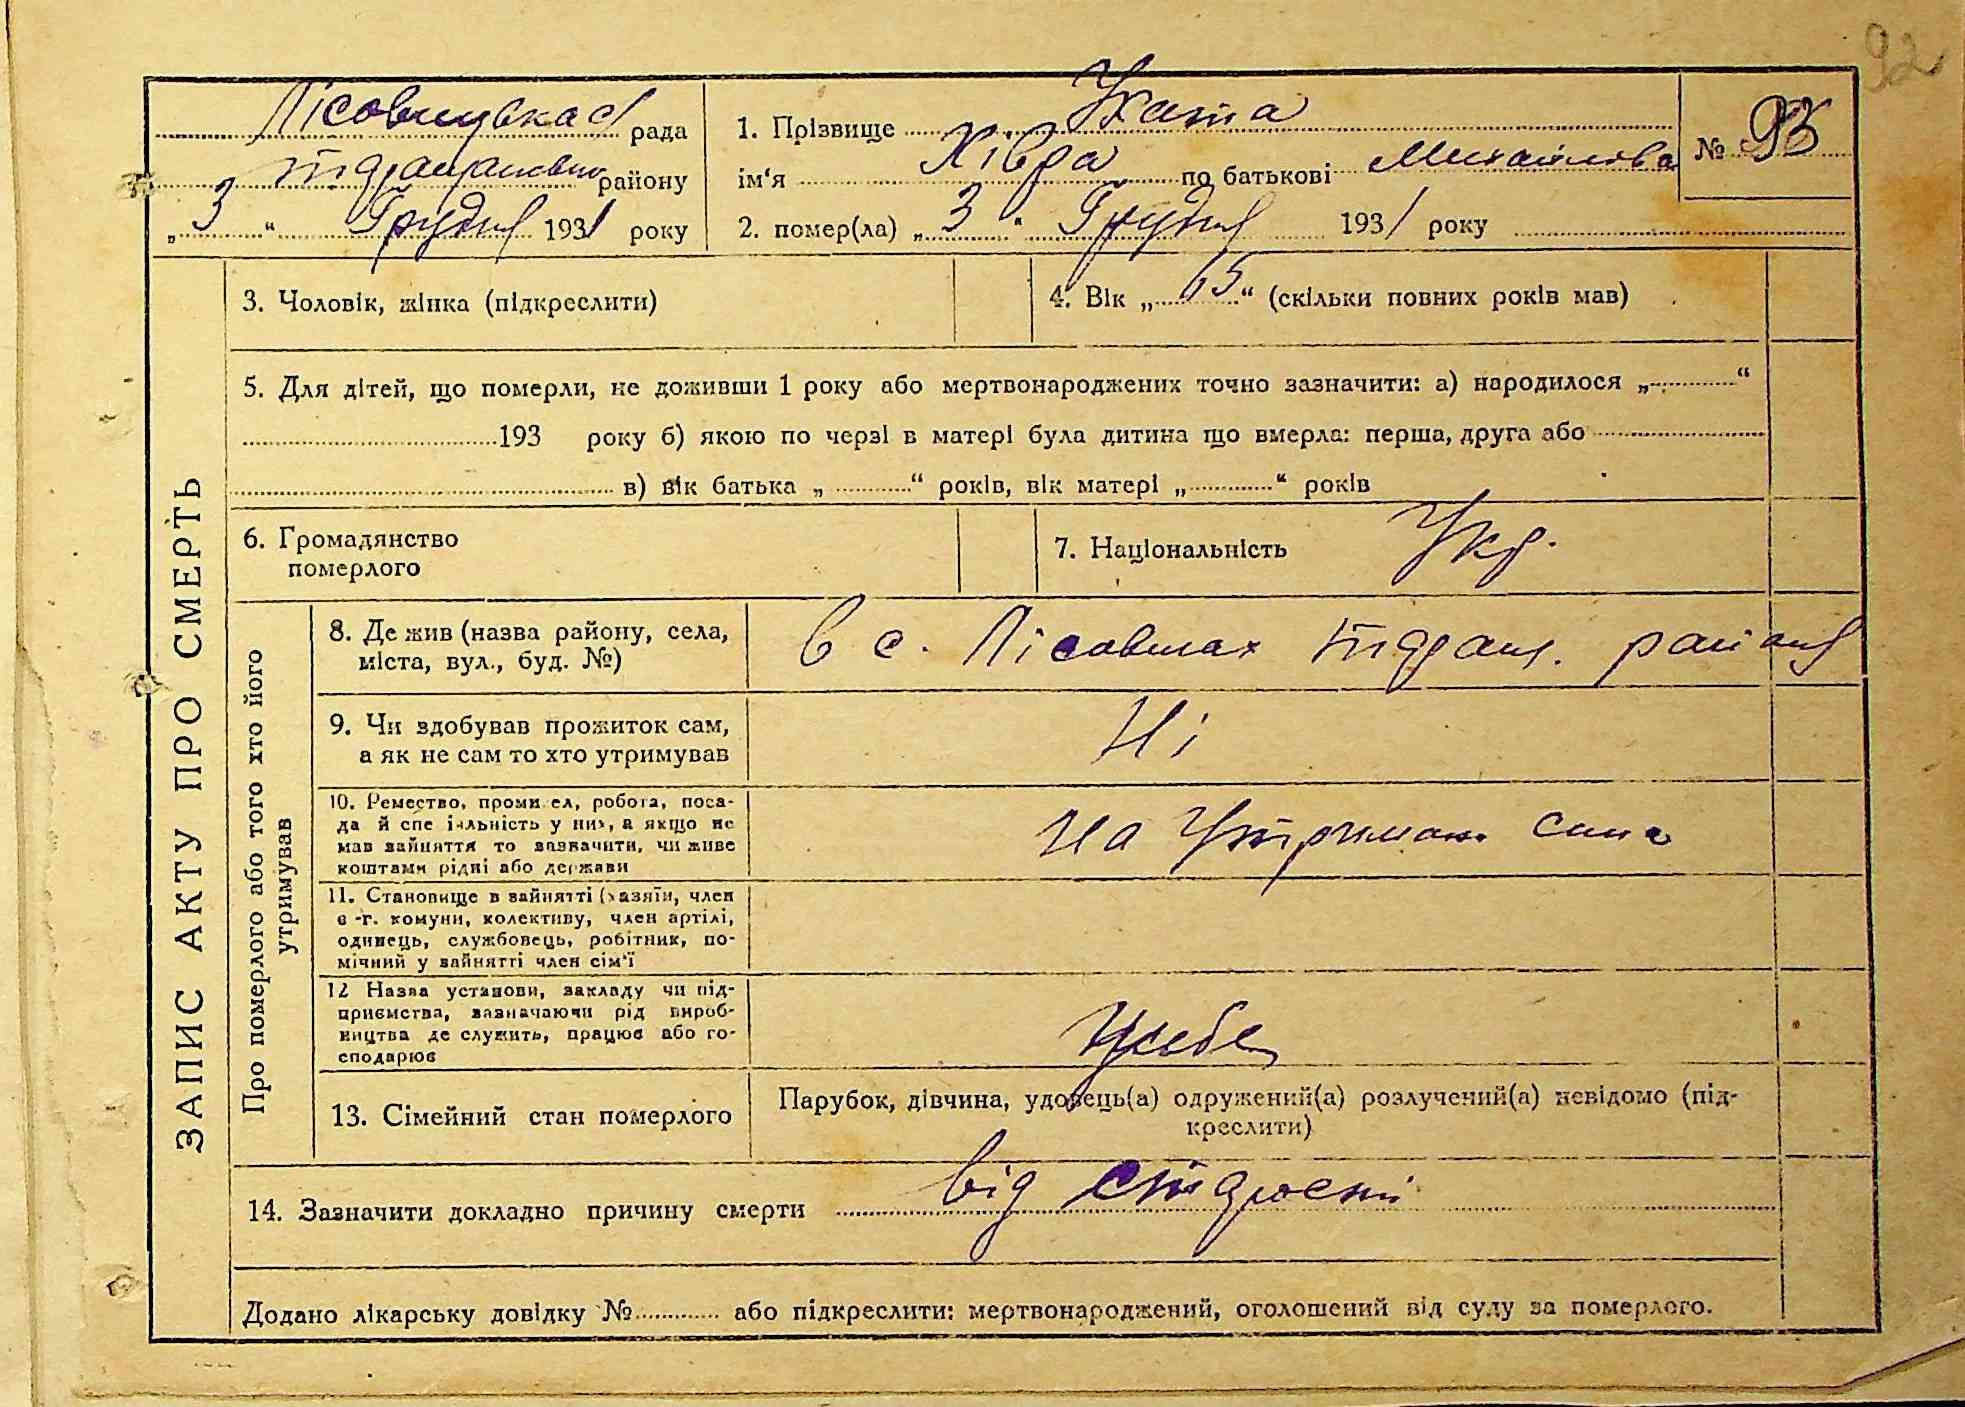 92
Лісовицькая рада
району
„ 3 “ Грудня 1931 року
1. Прізвище Уката
ім‘я Хівра по батькові Михайлова
2. помер(ла) „ 3 “ Грудня 1931 року
№ 93
ЗАПИС АКТУ ПРО СМЕРТЬ
3. Чоловік, жінка (підкреслити)
4. Вік „ 65 “ (скільки повних років мав)
5. Для дітей, що померли, не доживши 1 року або мертвонароджених точно зазначити: а) народилося „ “
193 року б) якою по черзі в матері була дитина що вмерла: перша, друга або
в) вік батька „ “ років, вік матері „ “ років
6. Громадянство
померлого
7. Національність Укр.
Про померлого або того хто його
утримував
8. Де жив (назва району, села,
міста, вул., буд. №)
в с. Лісовичах району
9. Чи здобував прожиток сам,
а як не сам то хто утримував
Ні
10. Ремество, промисел, робота, поса-
да й спеціяльність у них, а якщо не
мав зайняття то зазначити, чи живе
коштами рідні або держави
На Утриман. сина
11. Становище в зайнятті (хазяїн, член
с-г. комуни, колективу, член артілі,
одинець, службовець, робітник, по-
мічний у зайнятті член сім‘ї
12 Назва установи, закладу чи під-
приємства, зазначаючи рід вироб-
ництва де служить, працює або го-
сподарює
13. Сімейний стан померлого
Парубок, дівчина, удовець(а) одружений(а) розлучений(а) невідомо (під-
креслити)
14. Зазначити докладно причину смерти від старості
Додано лікарську довідку № або підкреслити: мертвонароджений, оголошений від суду за померлого.